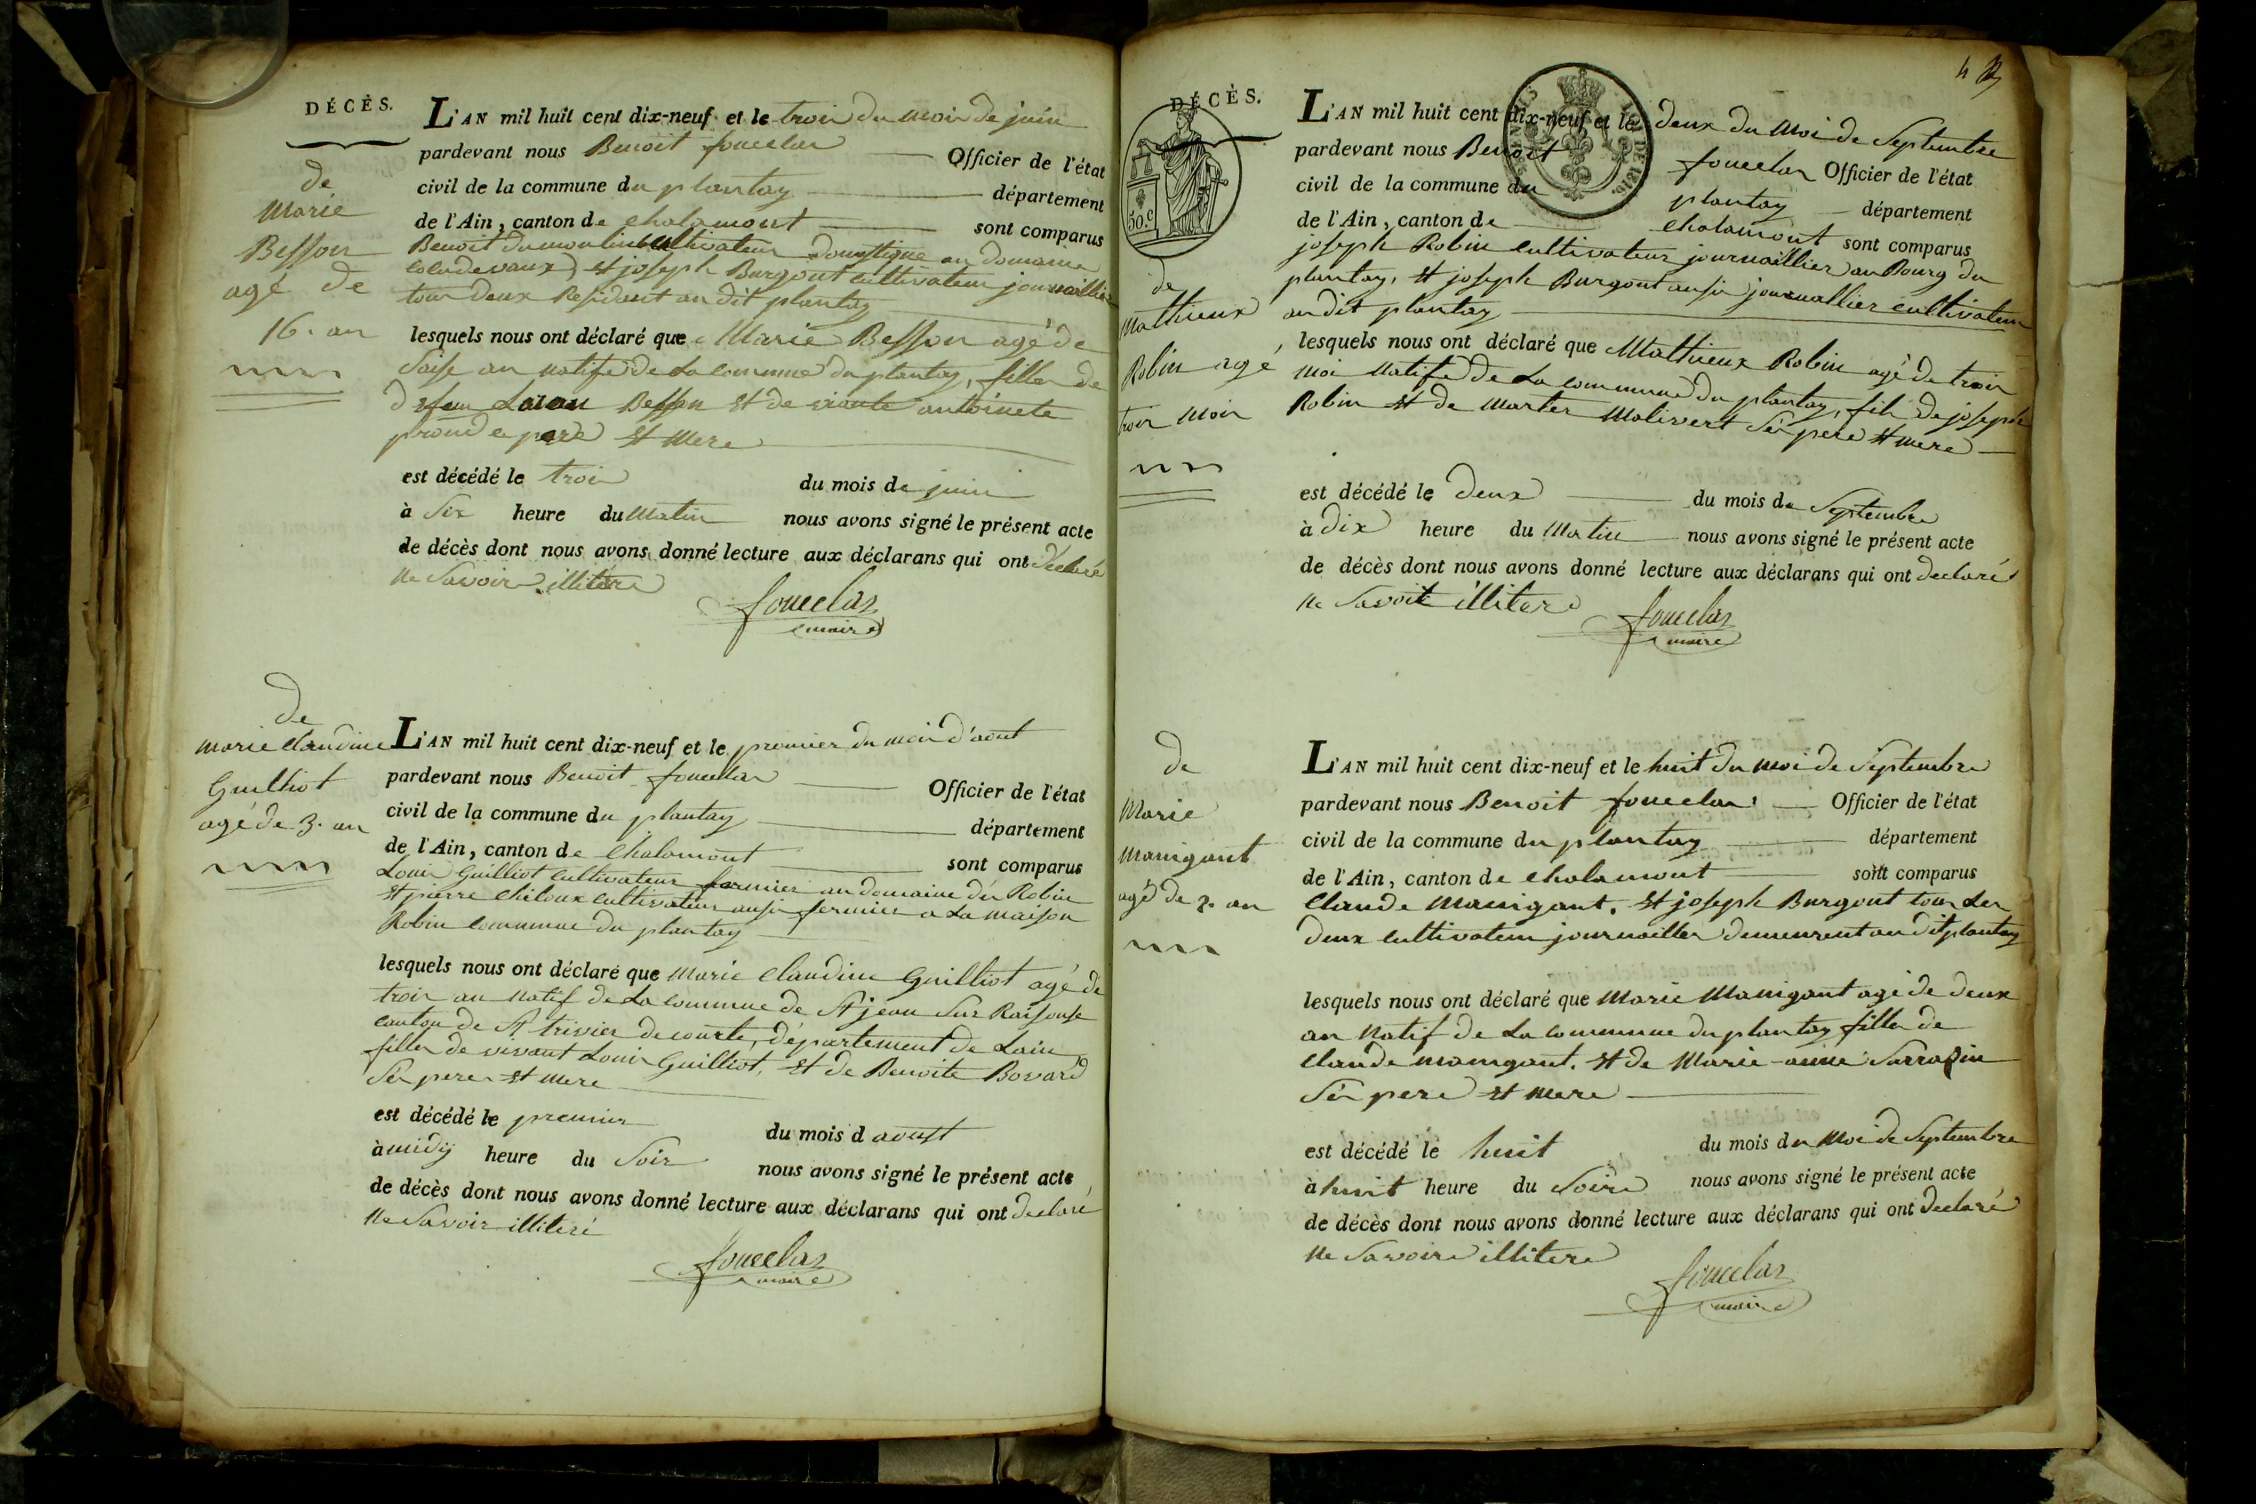 DÉCÈS.
de
Marie
Besson
agé de
16. an
L'AN mil huit cent dix-neuf et le troi du moi de juin
pardevant nous Benoit fouuelar Officier de l'état
civil de la commune du plantay département
de l'Ain, canton de chalamont sont comparus
Benoit dumoulin cultivateur domestique au domaine
et joseph Burgout cultivateur journaillier
tour deux Residant au dit plantay
lesquels nous ont déclaré que Marie Besson agé de
Saise an natife de La commune du plantay, filler de
Besson et de antoinete
pere et mere
est décédé le troi du mois de juin
à Six heure du Matin nous avons signé le présent acte
de décès dont nous avons donné lecture aux déclarans qui ont declaré
ne Savoir illitéré
fouuelar
maire
de
marie claudine
Guilliot
agé de 3. an
L'AN mil huit cent dix-neuf et le premier du moi d'aout
pardevant nous Benoit fouuelar Officier de l'état
civil de la commune du plantay département
de l'Ain, canton de chalamont sont comparus
Louis Guilliot cultivateur fermier au domaine du Robin
et pierre chiloux cultivateur ausir fermier a La maison
Robin commune du plantay
lesquels nous ont déclaré que marie claudine Guilliot agé de
troir an natif de La commune de St jean Sur Raisouse
canton de St trivier de courte, département de Lain
filler de vivant Louis Guilliot, et de Benoite Bovard
Sér perer et mere
est décédé le premier du mois d aoust
à midÿ heure du Soir nous avons signé le présent acte
de décès dont nous avons donné lecture aux déclarans qui ont declaré
ne Savoir illiteré
fouuelar
maire
4
DÉCÈS.
50.c
LOI DE 1816.
de
Mathieux
Robin agé
troir moir
L'AN mil huit cent dix-neuf et le deux du Moi de Septembre
pardevant nous Benoit fouuelar Officier de l'état
civil de la commune du plantay département
de l'Ain, canton de chalamont sont comparus
joseph Robin cultivateur journaillier au Bourg du
plantay, et joseph Burgout ausir journallier cultivateur
au dit plantay
lesquels nous ont déclaré que Mathieux Robin agé de troir
moi Natife de La commune du plantay, filr de joseph
Robin et de Marter Molivert Sér pere et mere
est décédé le deux du mois de Septembre
à dix heure du Matin nous avons signé le présent acte
de décès dont nous avons donné lecture aux déclarans qui ont declaré
ne Savoit illitere
fouuelar
maire
de
Marie
manigant
agé de 2. an
L'AN mil huit cent dix-neuf et le huit du moi de Septembre
pardevant nous Benoit fouuelar Officier de l'état
civil de la commune du plantay département
de l'Ain, canton de chalamont sont comparus
Claude Manigant. et joseph Burgout tour Ler
deux cultivateur journailler demeurent au dit plantay
lesquels nous ont déclaré que Marie Manigant agé de deux
an Natif de La commune du plantay filler de
Claude manigant. et de Marie-anne Sarrazin
Sér pere et mere
est décédé le huit du mois du Moi de Septembre
à huit heure du Soire nous avons signé le présent acte
de décès dont nous avons donné lecture aux déclarans qui ont declaré
ne Savoire illitere
fouuelar
maire